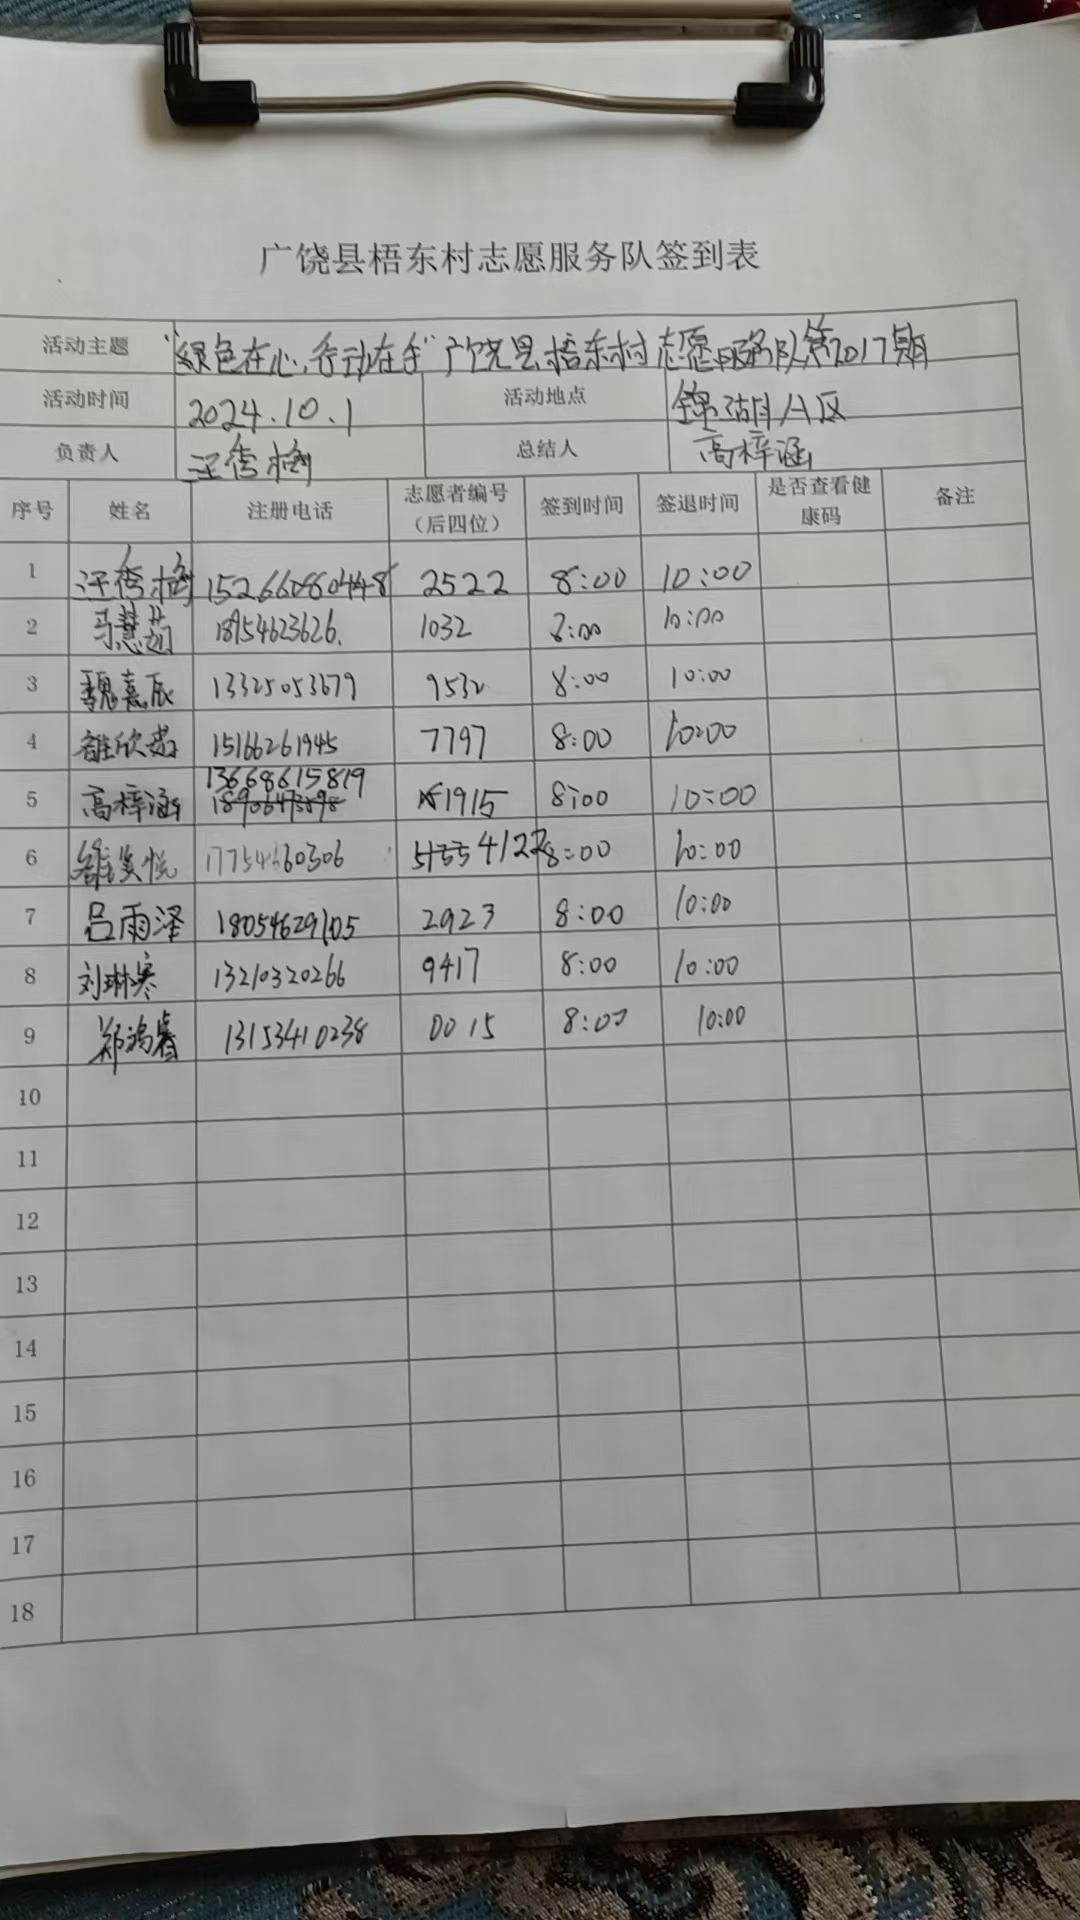 广饶县梧东村志愿服务队签到表
活动主题 "绿色在心,行动在手"广饶县梧东村志愿服务队第2017期
活动时间 2024.10.1 活动地点 锦湖A区
负责人 汪秀梅 总结人 高梓涵
序号 姓名 注册电话 志愿者编号(后四位) 签到时间 签退时间 是否查看健康码 备注
1 汪秀梅 15266080448 2522 8:00 10:00
2 马慧茹 18954623626. 1032 8:00 10:00
3 魏嘉辰 13325053679 9532 8:00 10:00
4 欣 15166261945 7797 8:00 10:00
5 高梓涵 13668615819 1915 8:00 10:00
6 悦 17754660306 4122 8:00 10:00
7 吕雨泽 18054629105 2923 8:00 10:00
8 刘琳寒 13210320266 9417 8:00 10:00
9 郑鸿睿 13153410238 0015 8:00 10:00
10
11
12
13
14
15
16
17
18